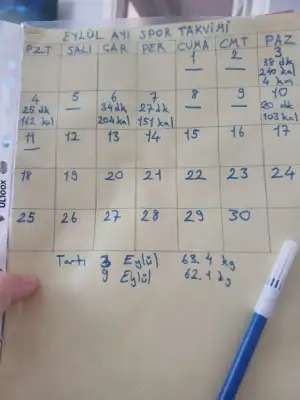 EYLÜL AYI SPOR TAKVİMİ
PZT SALI ÇAR PER CUMA CMT PAZ
1 2 3
— — 38 dk
240 kal
4 km
4 5 6 7 8 9 10
25 dk — 34 dk 27 dk — — 20 dk
162 kal 204 kal 151 kal 103 kal
11 12 13 14 15 16 17
—
18 19 20 21 22 23 24
25 26 27 28 29 30
Tartı 3 Eylül 63.4 kg
9 Eylül 62.1 kg